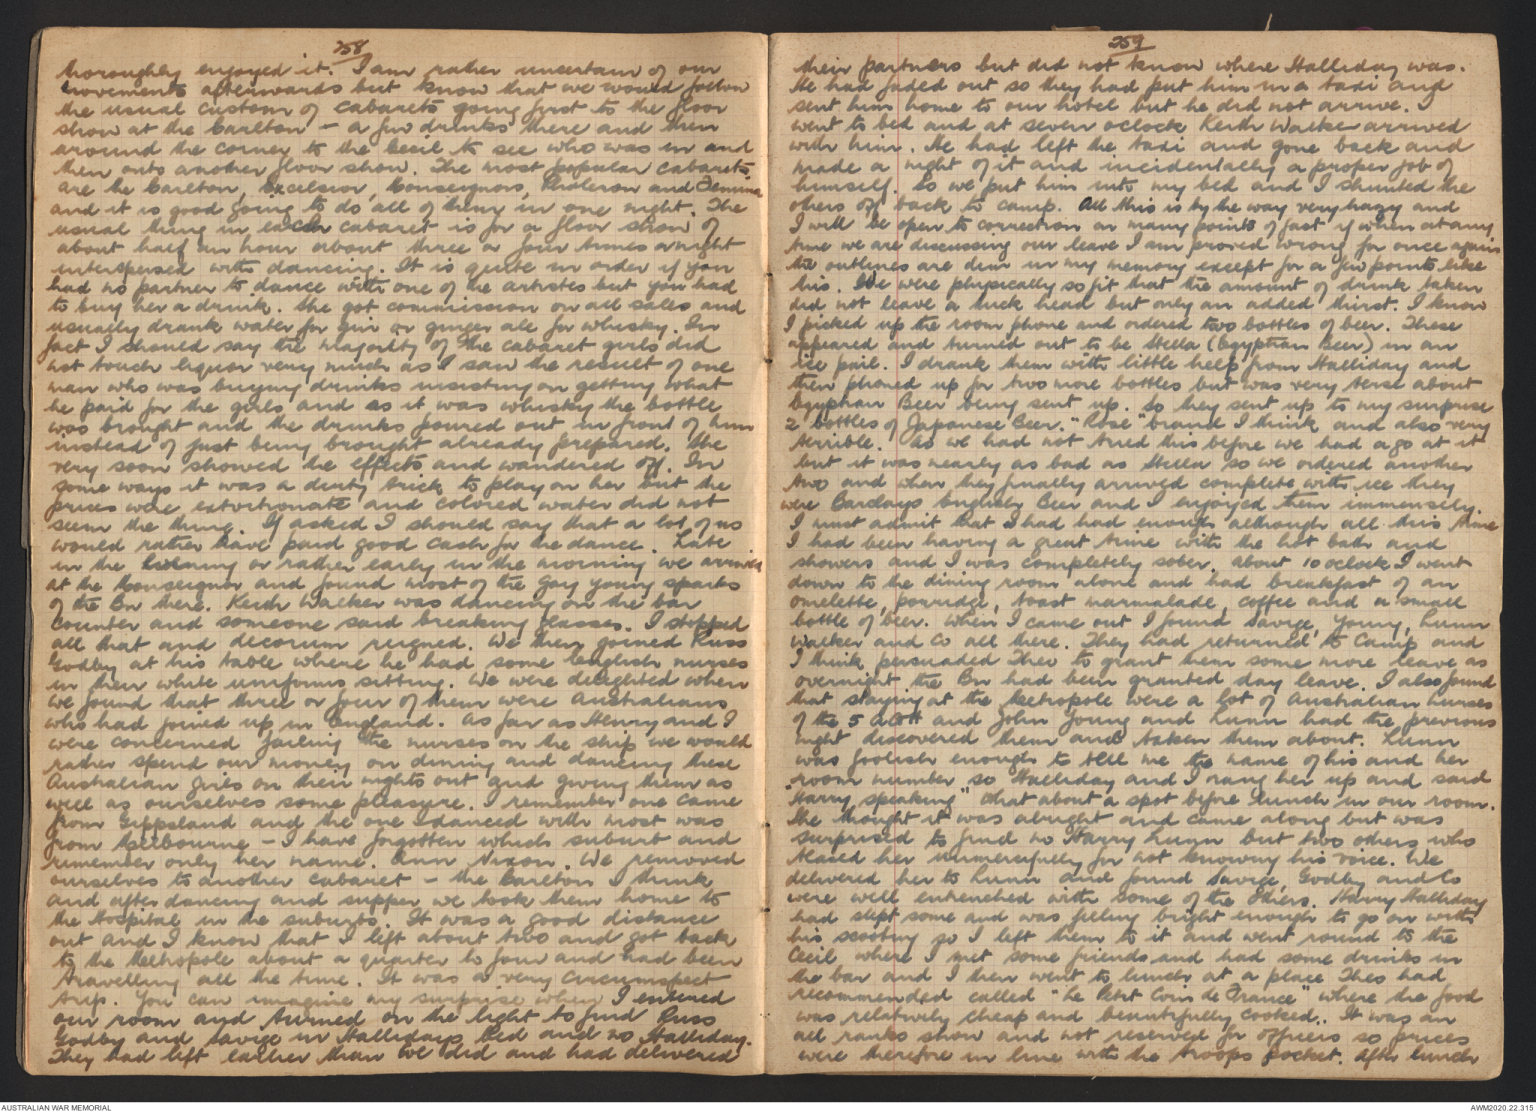 258
thoroughly enjoyed it. I am rather uncertain of our
movements afterwards but know that we would follow
the usual custom of cabarets going first to the floor
show at the Carlton – a few drinks there and then
around the corner to the Cecil to see who was in and
then onto another floor show. The most popular cabarets
are the Carlton, Excelsior, Monseignors, Phaleron and Femina
and it is good going to do all of them in one night. The
usual thing in each cabaret is for a floor show of
about half an hour about three or four times a night
interspersed with dancing. It is quite in order if you
had no partner to dance with one of the artistes but you had
to buy her a drink. She got commission on all sales and
usually drank water for gin or ginger ale for whisky. In
fact I should say the majority of the cabaret girls did
not touch liquor very much as I saw the result of one
man who was buying drinks insisting on getting what
he paid for the girls and as it was whisky the bottle
was brought and the drinks poured out in front of him
instead of just being brought already prepared. She
very soon showed the effects and wandered off. In
some ways it was a dirty trick to play on her but the
prices were extortionate and colored water did not
seem the thing. If asked I should say that a lot of us
would rather have paid good cash for the dance. Late
in the evening or rather early in the morning we arrived
at the Monseignor and found most of the gay young sparks
of the Bn there. Keith Walker was dancing on the bar
counter and someone said breaking glasses. I stopped
all that and decorum reigned. We then joined Russ
Godby at his table where he had some English nurses
in their white uniforms sitting. We were delighted when
we found that three or four of them were Australians
who had joined up in England. As far as Henry and I
were concerned failing the nurses on the ship we would
rather spend our money on dining and dancing these
Australian girls on their nights out and giving them as
well as ourselves some pleasure. I remember one came
from Gippsland and the one I danced with most was
from Melbourne – I have forgotten which suburb and
remember only her name. Ann Nixon. We removed
ourselves to another cabaret – the Carlton I think
and after dancing and supper we took them home to
the Hospital in the suburbs. It was a good distance
out and I know that I left about two and got back
to the Metropole about a quarter to four and had been
travelling all the time. It was a very circumspect
trip. You can imagine my surprise when I entered
our room and turned on the light to find Russ
Godby and Savige in Hallidays bed and no Halliday.
They had left earlier than we did and had delivered
259
their partners but did not know where Halliday was.
He had faded out so they had put him in a taxi and
sent him home to our hotel but he did not arrive. I
went to bed and at seven oclock Keith Walker arrived
with him. He had left the taxi and gone back and
made a night of it and incidentally a proper job of
himself. So we put him into my bed and I shunted the
others off back to camp. All this is by the way very hazy and
I will be open to correction on many points of fact if when at any
time we are discussing our leave I am proved wrong for once again
the outlines are dim in my memory except for a few points like
this. We were physically so fit that the amount of drink taken
did not leave a thick head but only an added thirst. I know
I picked up the room phone and ordered two bottles of beer. These
appeared and turned out to be Stella (Egyptian Beer) in an
ice pail. I drank them with little help from Halliday and
then phoned up for two more bottles but was very terse about
Egyptian Beer being sent up. So they sent up to my surprise
2 bottles of Japanese Beer. "Rose" brand I think and also very
terrible. As we had not tried this before we had a go at it
but it was nearly as bad as Stella so we ordered another
two and when they finally arrived complete with ice they
were Barclays English Beer and I enjoyed them immensely.
I must admit that I had had enough although all this time
I had been having a great time with the hot bath and
showers and I was completely sober. About 10 oclock I went
down to the dining room alone and had breakfast of an
omelette, porridge, toast marmalade, coffee and a small
bottle of beer. When I came out I found Savige, Young, Lunn
Walker and Co all there. They had returned to Camp and
I think persuaded Theo to grant them some more leave as
overnight the Bn had been granted day leave. I also found
that staying at the Metropole were a lot of Australian nurses
of the 5 AGH and John Young and Lunn had the previous
night discovered them and taken them about. Lunn
was foolish enough to tell me the name of his and her
room number so Halliday and I rang her up and said
"Harry speaking" What about a spot before lunch in our room.
She thought it was alright and came along but was
surprised to find no Harry Lunn but two others who
teased her unmercifully for not knowing his voice. We
delivered her to Lunn and found Savige, Godby and Co
were well entrenched with some of the others. Harry Halliday
had slept some and was feeling bright enough to go on with
his scooting so I left them to it and went round to the
Cecil where I met some friends and had some drinks in
the bar and I then went to lunch at a place Theo had
recommended called "Le Petit Coin de France" where the food
was relatively cheap and beautifully cooked. It was an
all ranks show and not reserved for officers so prices
were therefore in line with the troops pocket. After lunch
AUSTRALIAN WAR MEMORIAL
AWM2020.22.315